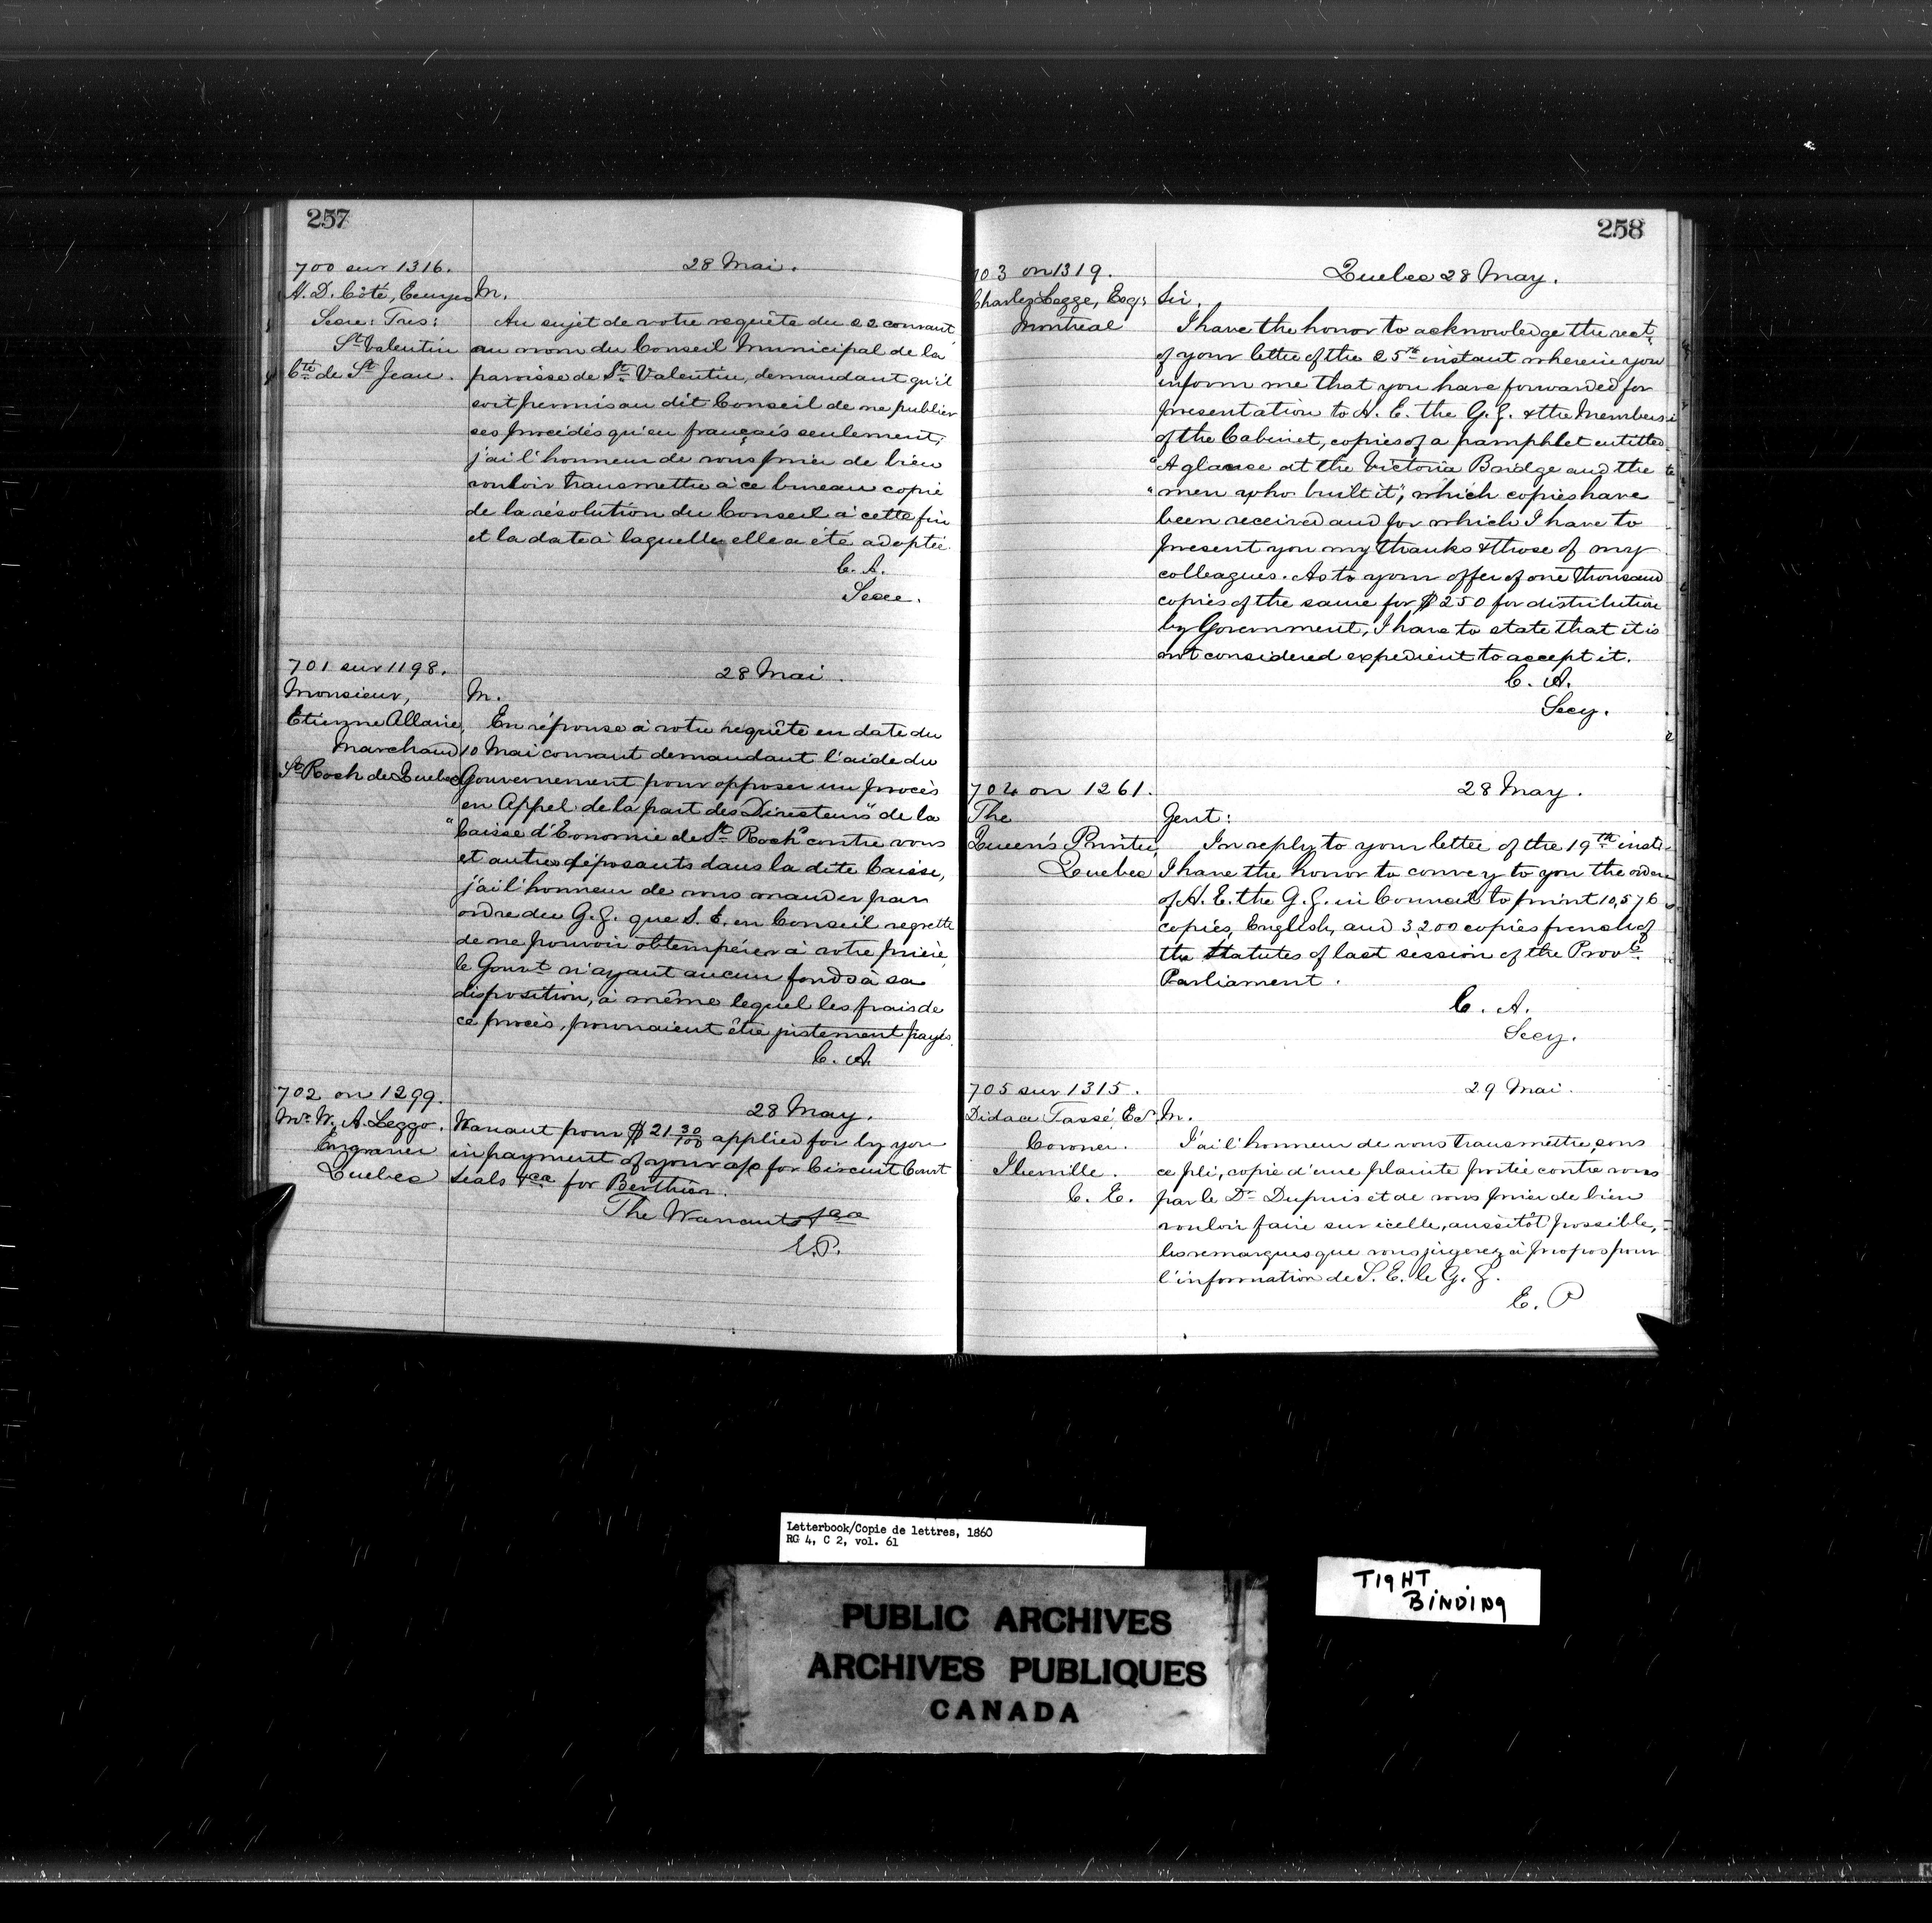 257
700 sur 1316.
28 Mai.
A. D. Côté, Ecuyer
M.
Secre: Tres:
St Valentin
Cté de St Jean.
Au sujet de votre requête du 22 courant
au nom du Conseil Municipal de la
paroisse de St Valentin, demandant qu'il
soit permis au dit Conseil de ne publier
ses procédés qu'en français seulement;
j'ai l'honneur de vous prier de bien
vouloir transmettre à ce bureau copie
de la résolution du Conseil à cette fin
et la date à laquelle elle a été adoptée.
C. A.
Secre.
701 sur 1198.
28 Mai.
Monsieur,
Etienne Allaire,
Marchand
St Roch de Quebec
M.
En réponse à votre requête en date du
10 Mai courant demandant l'aide du
Gouvernement pour opposer un procès
en Appel de la part des Directeurs de la
"Caisse d'Economie de St Roch" contre vous
et autres déposants dans la dite Caisse,
j'ai l'honneur de vous mander par
ordre du G. G. que S. E. en Conseil regrette
de ne pouvoir obtempérer à votre prière,
le Gouvt n'ayant aucun fonds à sa
disposition, à même lequel les frais de
ce procès, pourraient être justement payés.
C. A.
702 on 1299.
28 May.
Mr W. A. Leggo.
Engraver
Quebec
Warrant pour $21 30/100 applied for by you
in payment of your a/c for Circuit Court
Seals &ca for Berthier.
The Warrants &ca
E. P.
258
703 on 1319.
Quebec 28 May.
Charles Legge, Esq:
Montreal
Sir,
I have the honor to acknowledge the rect.
of your letter of the 25th instant wherein you
inform me that you have forwarded for
presentation to H. E. the G. G. & the Members
of the Cabinet, copies of a pamphlet entitled
"A glanse at the Victoria Bridge and the
"men who built it", which copies have
been received and for which I have to
present you my thanks & those of my
colleagues. As to your offer of one thousand
copies of the same for $250 for distribution
by Government, I have to state that it is
not considered expedient to accept it.
C. A.
Secy.
704 on 1261.
28 May.
The
Queen's Printer,
Quebec
Gent:
In reply to your letter of the 19th inst:
I have the honor to convey to you the order
of H. E. the G. G. in Council to print 10,576
copies, English, and 3200 copies french of
the Statutes of last session of the Provl
Parliament.
C. A.
Secy.
705 sur 1315.
29 Mai.
Didace Tassé, Ecr
Coroner.
Iberville.
C. E.
M.
J'ai l'honneur de vous transmettre, sous
ce pli, copie d'une plainte portée contre vous
par le Dr Dupuis et de vous prier de bien
vouloir faire sur icelle, aussitôt possible,
les remarques que vous jugerez à propos pour
l'information de S. E. le G. G.
E. P
Letterbook/Copie de lettres, 1860
RG 4, C 2, vol. 61
PUBLIC ARCHIVES
ARCHIVES PUBLIQUES
CANADA
TIGHT
BINDING